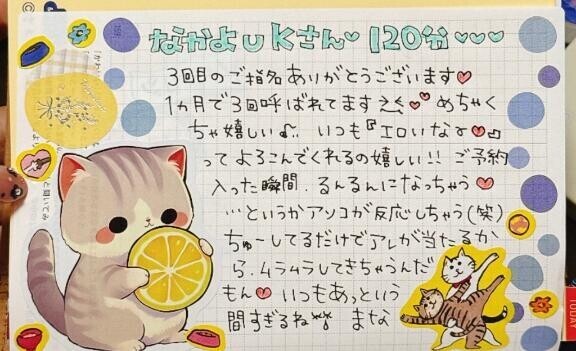 なかよしKさん♡ 120分♡♡♡
3回目のご指名ありがとうございます♡
1ヵ月で3回呼ばれてます♡ めちゃく
ちゃ嬉しい♪。いつも『エロいな〜♡』
ってよろこんでくれるの嬉しい!! ご予約
入った瞬間、るんるんになっちゃう♡
…というかアソコが反応しちゃう(笑)
ちゅーしてるだけでアレが当たるか
ら、ムラムラしてきちゃうんだ
もん♡ いつもあっという
間すぎるね まな
TODAY